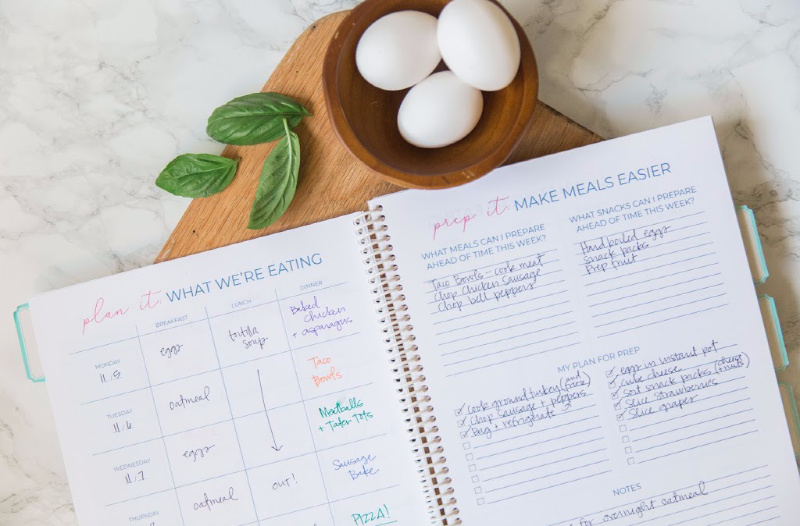 plan it. WHAT WE'RE EATING
BREAKFAST LUNCH DINNER
MONDAY
11.5
eggs
tortilla
soup
Baked
chicken
+ asparagus
TUESDAY
11.6
oatmeal
Taco
Bowls
WEDNESDAY
11.7
eggs
Meatballs
+ Tater Tots
THURSDAY
oatmeal
OUT!
Sausage
Bake
PIZZA!
prep it. MAKE MEALS EASIER
WHAT MEALS CAN I PREPARE
AHEAD OF TIME THIS WEEK?
Taco Bowls - cook meat
Chop Chicken Sausage
Chop bell peppers
WHAT SNACKS CAN I PREPARE
AHEAD OF TIME THIS WEEK?
Hardboiled eggs
Snack packs
Prep fruit
MY PLAN FOR PREP
cook ground turkey (and
chop sausage + peppers
Bag + refrigerate
eggs in instant pot
cube cheese
sort snack packs (cheese
+ nuts)
slice strawberries
slice grapes
NOTES
for overnight oatmeal